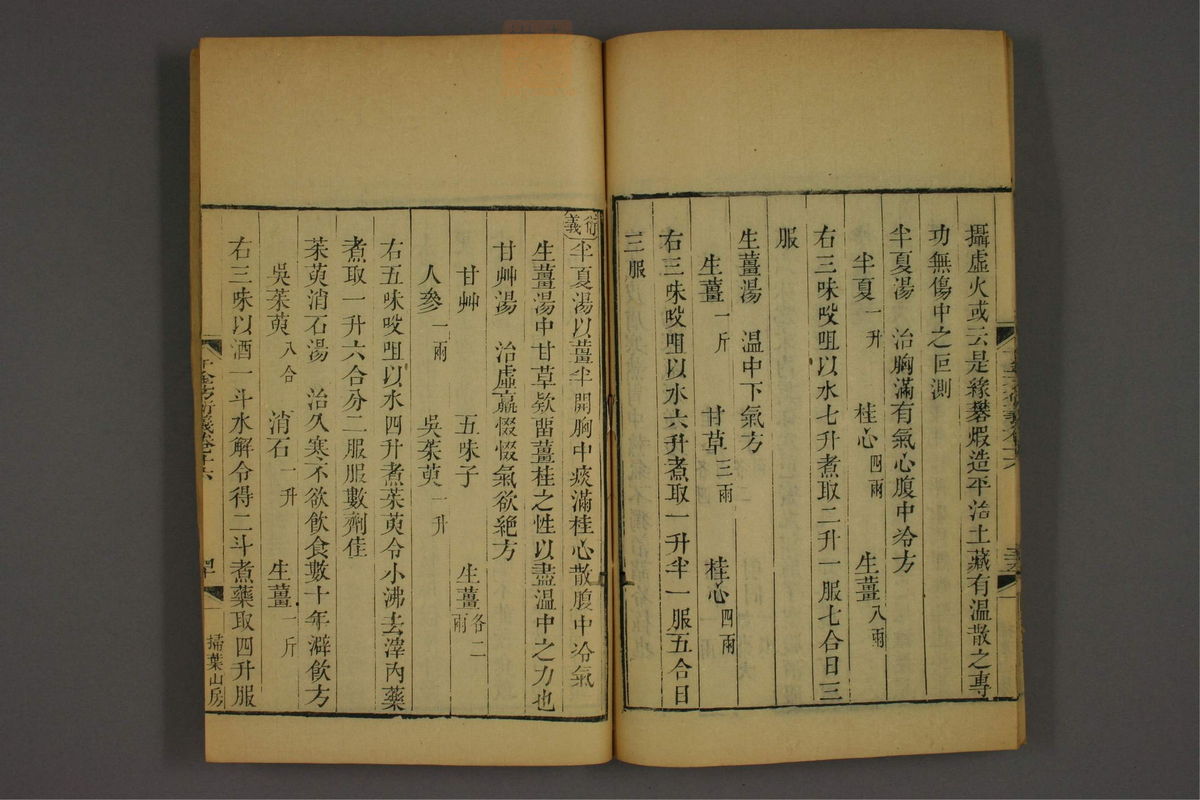 攝虛火或云是緣礬煆造平治土藏有溫散之專
功無傷中之叵測
半夏湯　治胸滿有氣心腹中冷方
半夏一升　桂心四兩　生薑八兩
右三味㕮咀以水七升煮取二升一服七合日三
服
生薑湯　溫中下氣方
生薑一斤　甘草三兩　桂心四兩
右三味㕮咀以水六升煮取一升半一服五合日
三服
衍義半夏湯以薑半開胸中痰滿桂心散腹中冷氣
生薑湯中甘草欵畱薑桂之性以盡溫中之力也
甘艸湯　治虛羸惙惙氣欲絕方
甘艸　五味子　生薑各二兩
人參一兩　吳茱萸一升
右五味㕮咀以水四升煮茱萸令小沸去滓內藥
煮取一升六合分二服服數劑佳
茱萸消石湯　治久寒不欲飲食數十年澼飲方
吳茱萸八合　消石一升　生薑一斤
右三味以酒一斗水解令得二斗煮藥取四升服
千金方衍義卷十六
掃葉山房